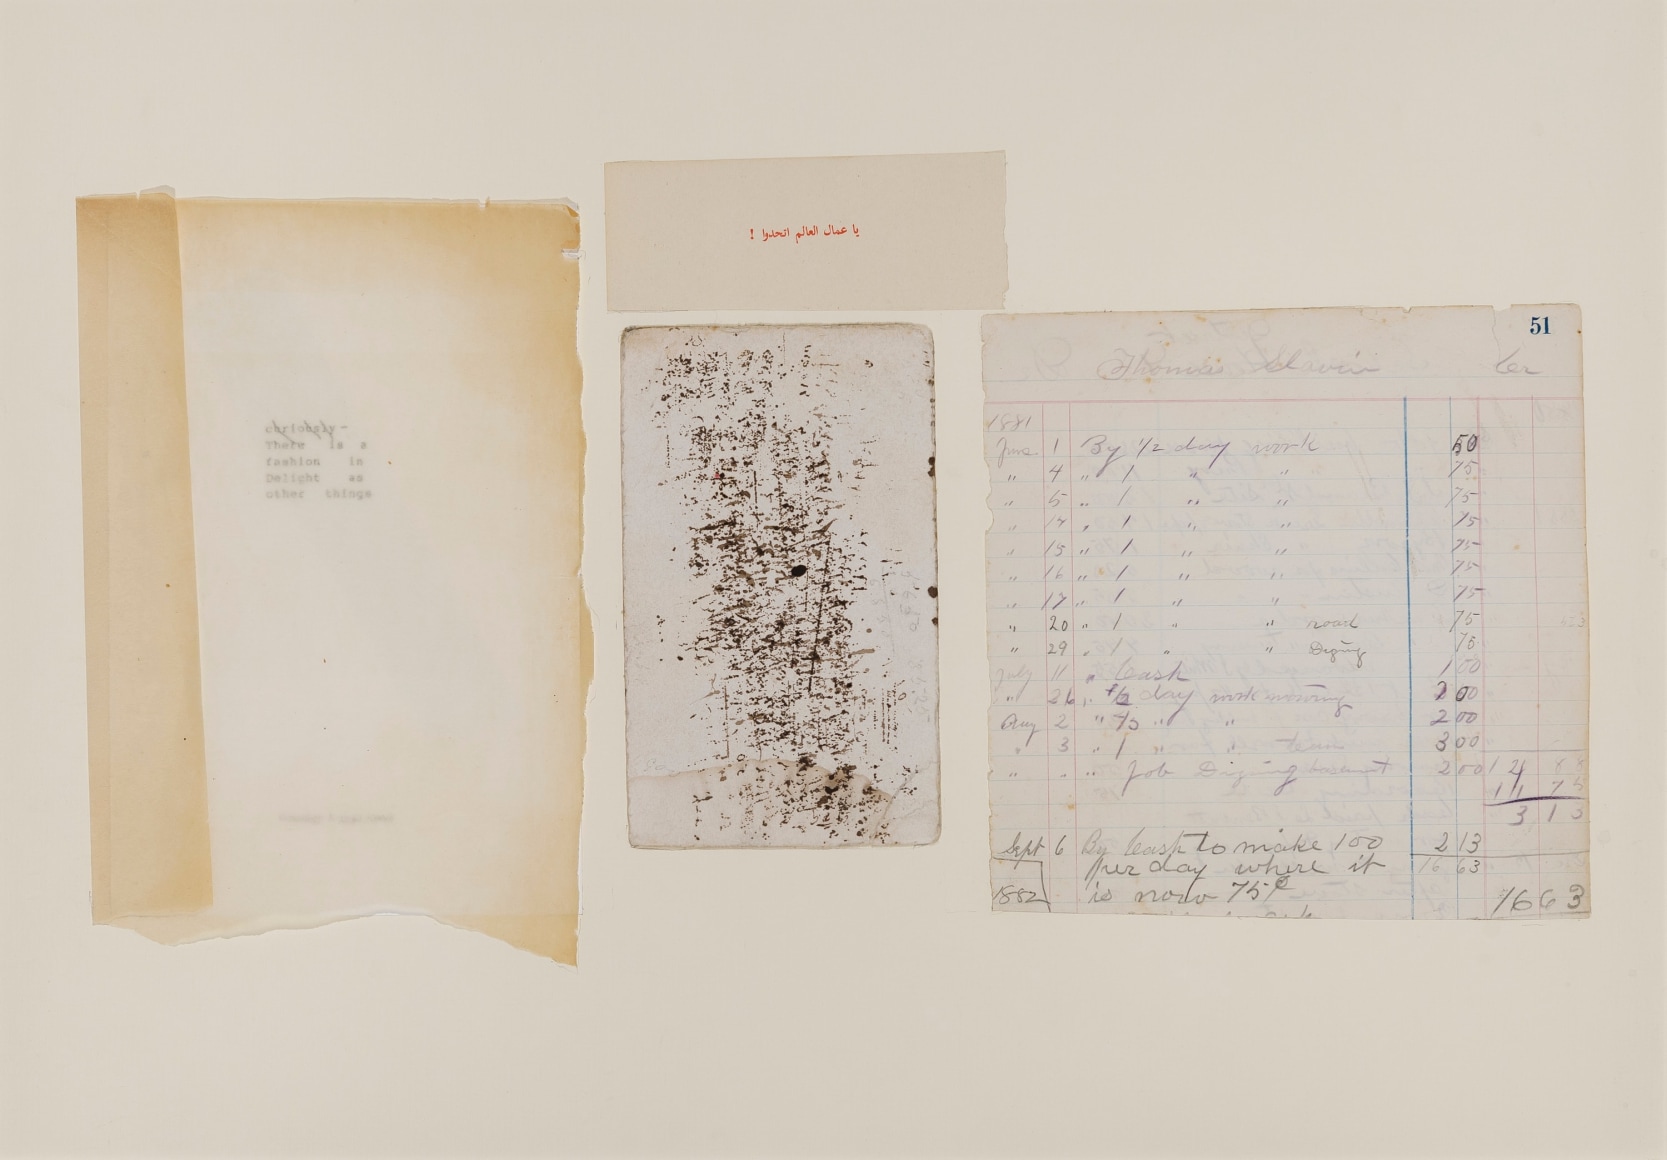 curiously-
There is a
fashion in
Delight as
other things
يا عمال العالم اتحدوا !
51
Thomas Cr
1881
June 1 By 1/2 day work 50
" 4 " 1 " " 75
" 5 " 1 " " 75
" 14 " 1 " " 75
" 15 " 1 " " 75
" 16 " 1 " " 75
" 17 " 1 " " 75
" 20 " 1 " " road 75
" 29 " 1 " " Diging 75
July 11 " Cash 1 00
" 26 " 1/2 day work mowing 2 00
Aug 2 " " " 2 00
" 3 " 1 " " team 3 00
" " " Job Diging basement 2 00
3 13
Sept 6 By Cash to make 100 2 13
per day where it 16 63
is now 75¢ 16 63
1882